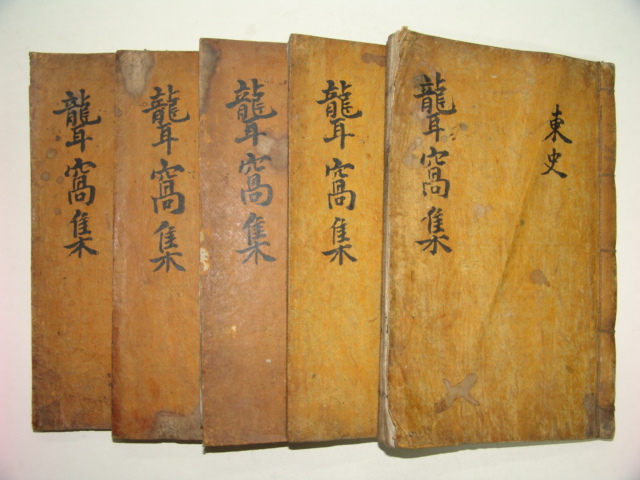 東史
聾窩集
聾窩集
聾窩集
聾窩集
聾窩集